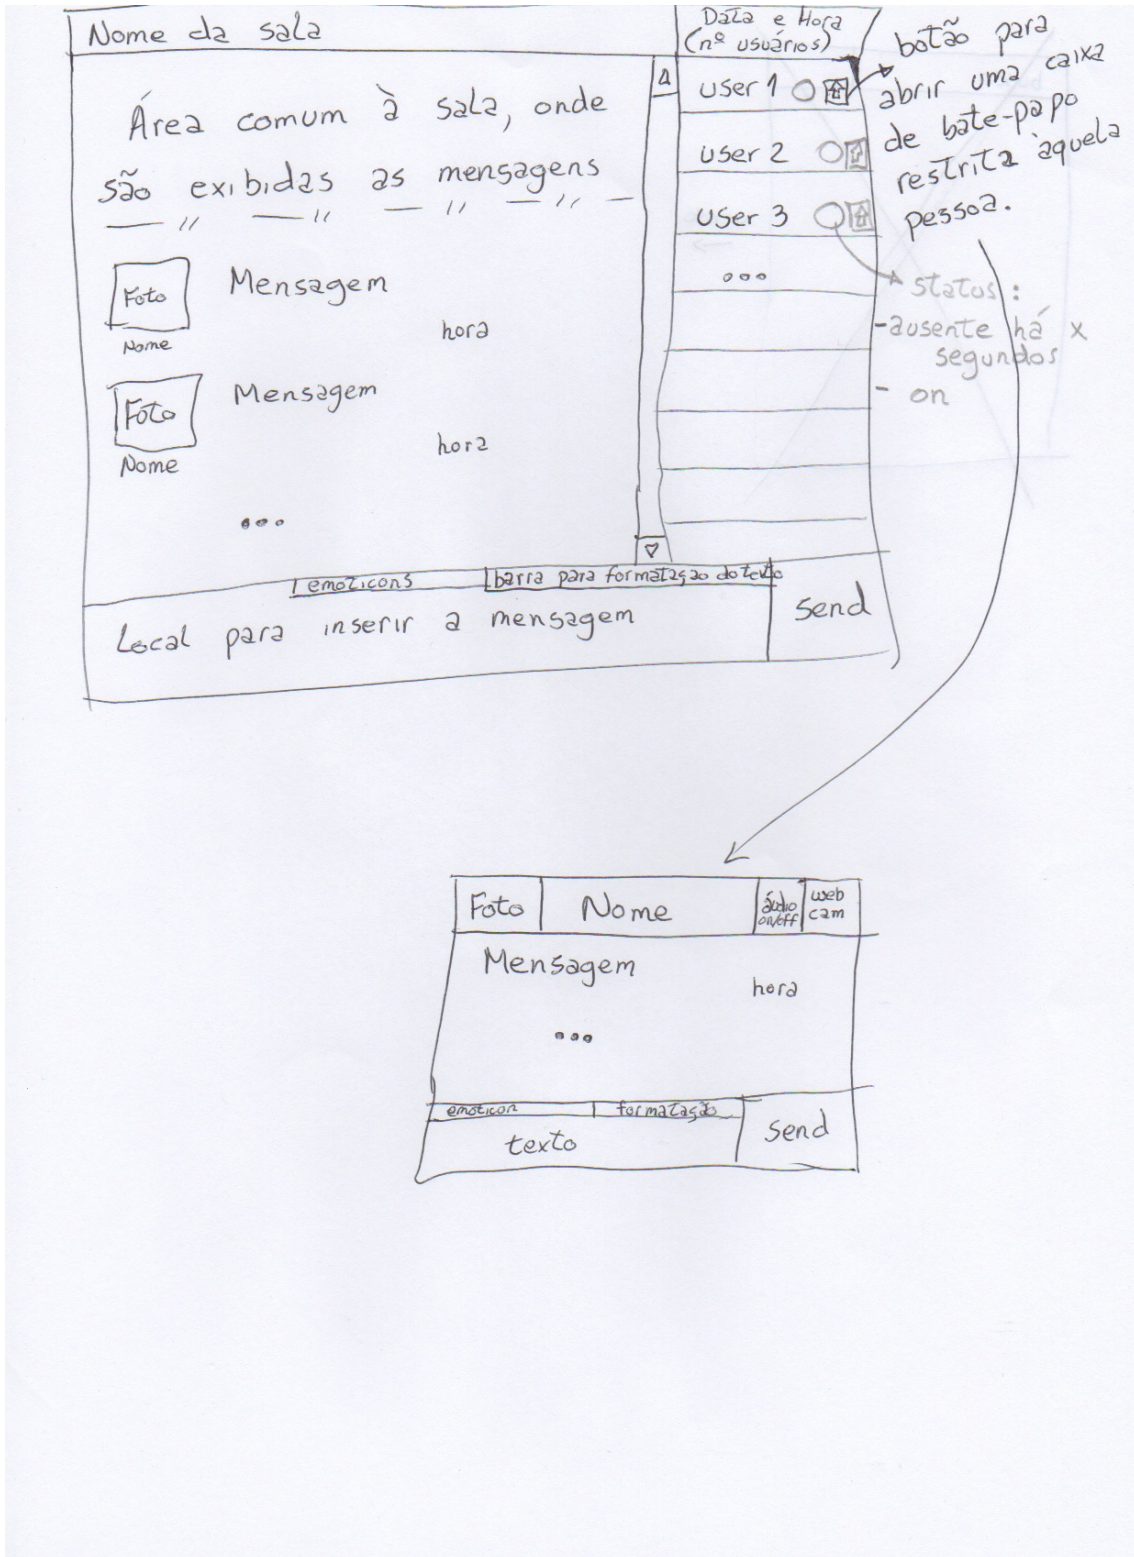 Nome da sala
Data e Hora
(nº usuários)
Área comum à sala, onde
são exibidas as mensagens
— " — " — " — " —
Foto
Nome
Mensagem
hora
Foto
Nome
Mensagem
hora
...
user 1
user 2
user 3
...
botão para
abrir uma caixa
de bate-papo
restrita àquela
pessoa.
status:
- ausente há x
segundos
- on
emoticons
barra para formatação do texto
Local para inserir a mensagem
Send
Foto
Nome
áudio
on/off
web
cam
Mensagem
hora
...
emoticon
formatação
texto
Send